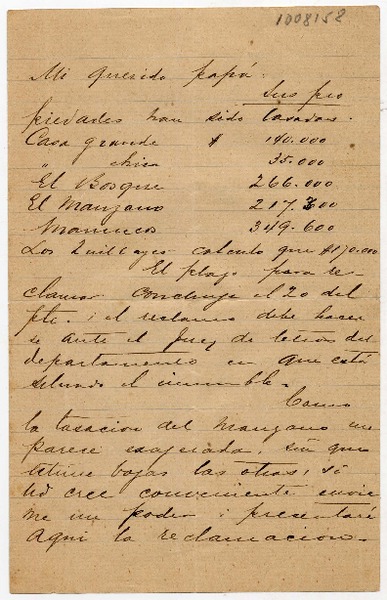 1008158
Mi querido papá:
Sus pro
piedades han sido tasadas.
Casa grande $ 140.000
" chica 35.000
El Bosque 266.000
El Manzano 217.300
Marruecos 349.600
Los Quillayes calculo que $170.000
El plazo para re
clamar concluye el 20 del
pte. i el reclamo debe hacer
se ante el Juez de letras del
departamento en que está
situado el inmueble.
Como
la tasacion del Manzano me
parece exajerada, sin que
estime bajas las otras, si
Ud cree conveniente envie
me un poder i presentaré
aqui la reclamacion.